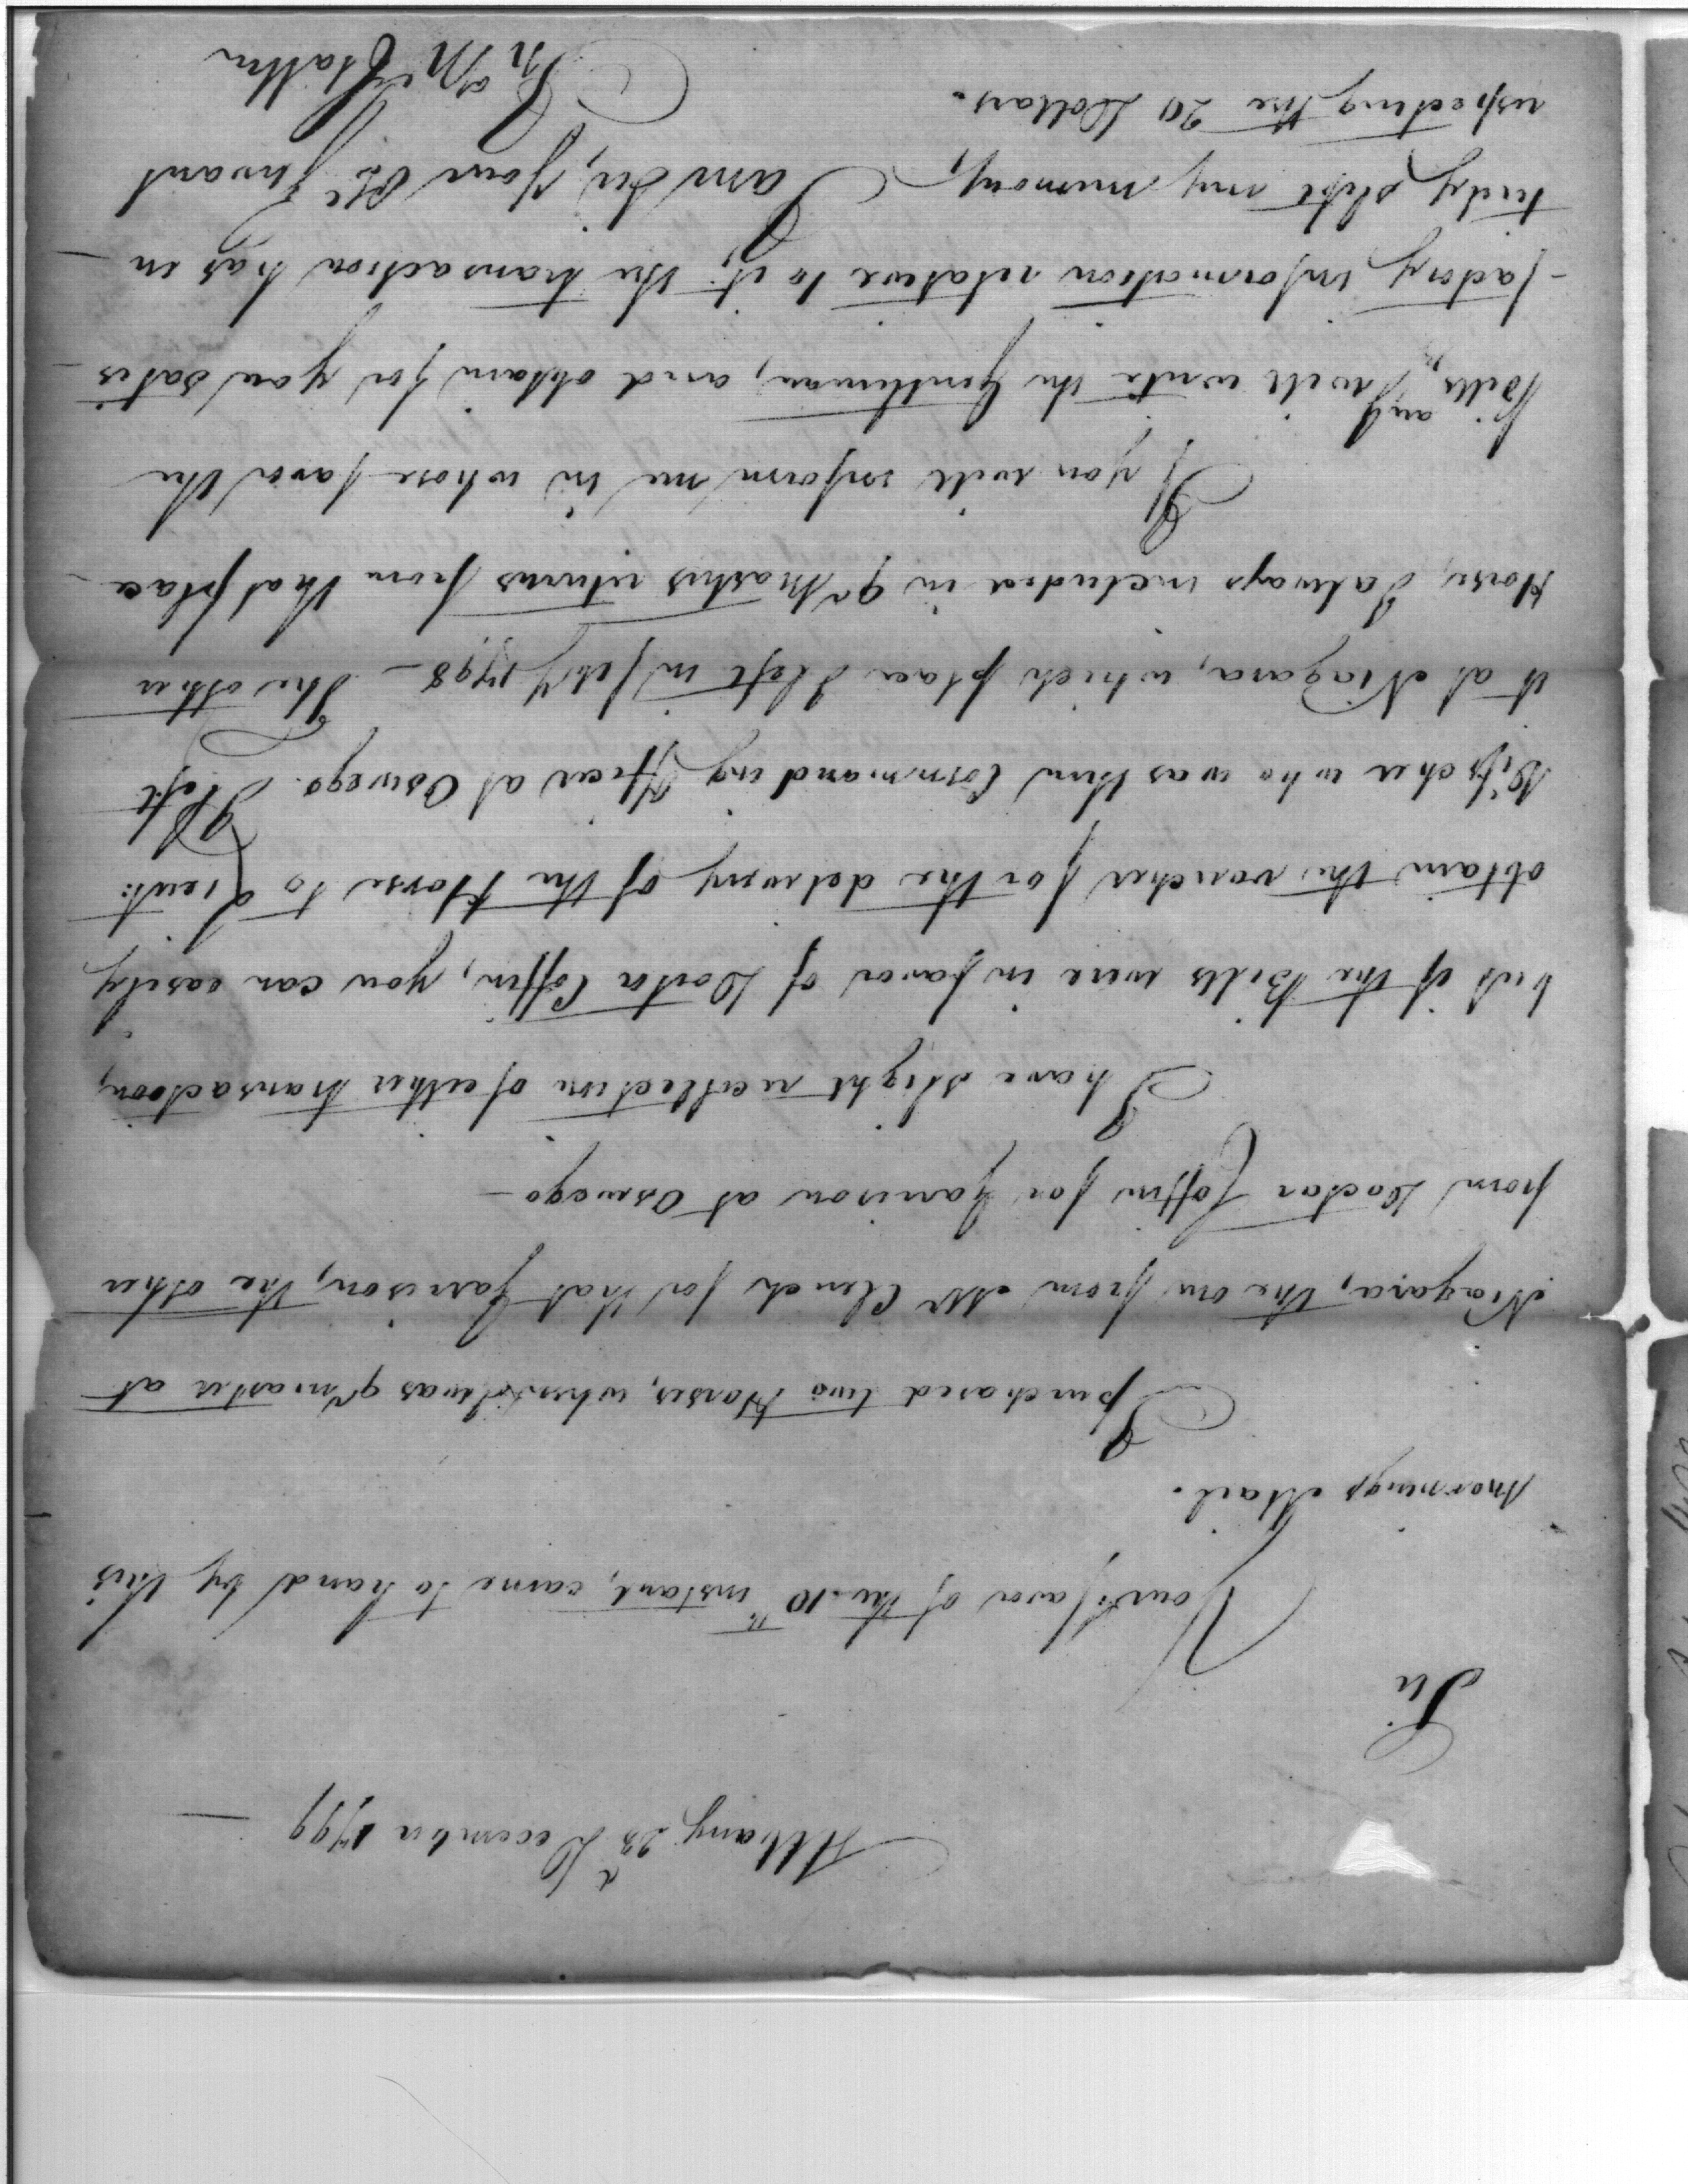 Albany 23d December 1799 —
Sir
Your favor of the 10th instant, came to hand by this
mornings Mail.
I purchased two Horses, when I was qr master at
Niagara, the one from Mr Clench for that Garrison, the other
from Doctor Coffin for Garrison at Oswego —
I have slight recollection of either transaction,
but if the Bills were in favor of Doctor Coffin, you can easily
obtain the voucher for the delivery of the Horse to Lieut:
Visscher who was then Commanding Officer at Oswego. I left
it at Niagara, which place I left in feby 1798 — The other
Horse, I always included in qr Masters returns from that place —
If you will inform me in whose favor the
Bills, are I will write the Gentleman, and obtain for you satis
-factory information relative to it; the transaction has en —
tirely slipt my memory, I am Sir, Your Obt Servant
respecting the 20 Dollars.
Jn McClallen